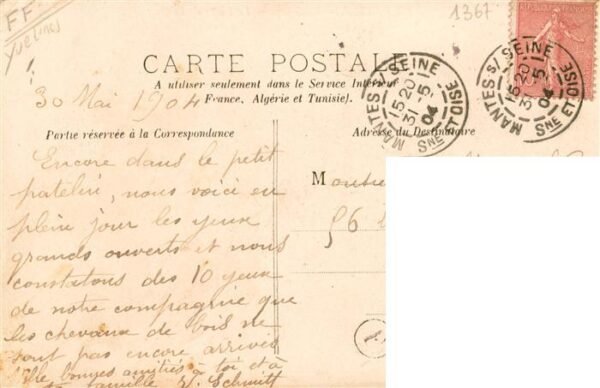 FF
Yvelines
1367
CARTE POSTALE
A utiliser seulement dans le Service Intérieur
(France, Algérie et Tunisie).
30 Mai 1904
MANTES S/SEINE
15 20
31 5
04
SNE ET OISE
MANTES S/SEINE
15 20
31 5
04
SNE ET OISE
Partie réservée à la Correspondance
Adresse du Destinataire
Encore dans le petit
patelin, nous voici en
plein jour les yeux
grands ouverts et nous
constatons des 10 yeux
de notre compagnie que
les chevaux de bois ne
sont pas encore arrivés
bonnes amitiés à toi et à
famille V. Schmitt
M
56